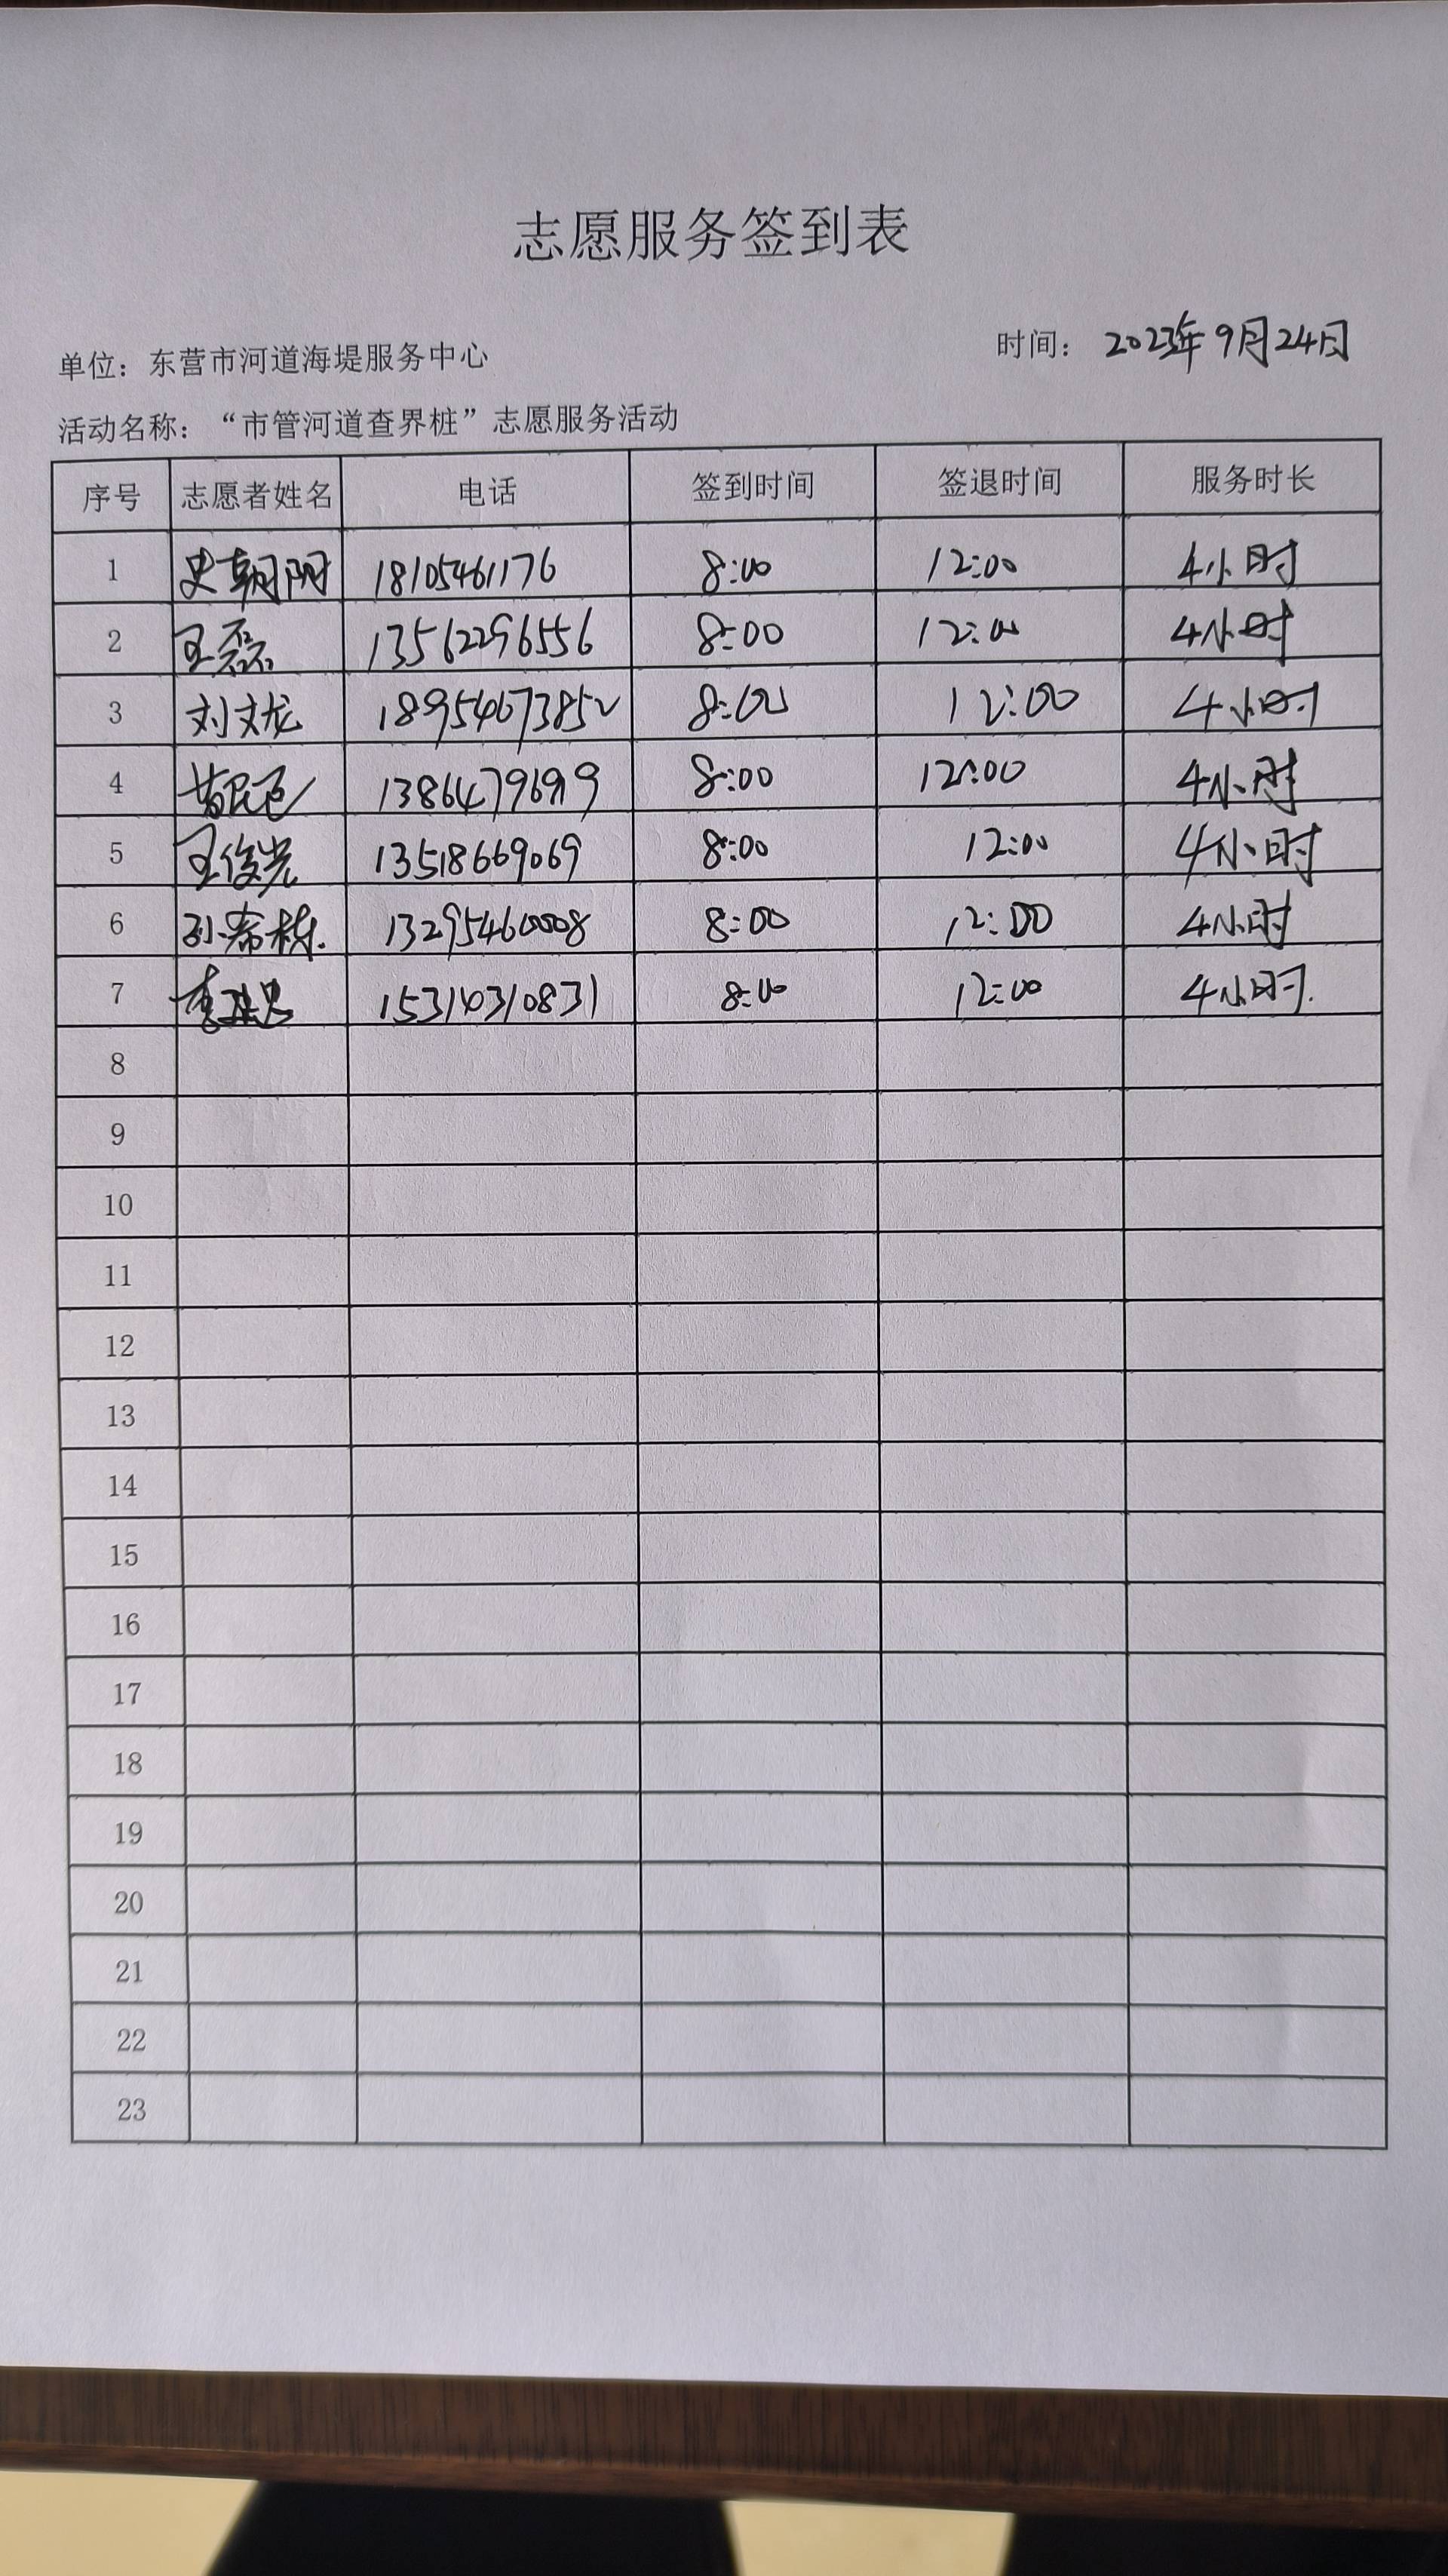 志愿服务签到表
单位：东营市河道海堤服务中心 时间：2023年9月24日
活动名称：“市管河道查界桩”志愿服务活动
序号 志愿者姓名 电话 签到时间 签退时间 服务时长
1 史朝阳 18105461176 8:00 12:00 4小时
2 王磊 13562296556 8:00 12:00 4小时
3 刘文龙 18954673852 8:00 12:00 4小时
4 8:00 12:00 4小时
5 王俊光 13518669069 8:00 12:00 4小时
6 孙希栋 13295460008 8:00 12:00 4小时
7 15314310831 8:00 12:00 4小时
8
9
10
11
12
13
14
15
16
17
18
19
20
21
22
23